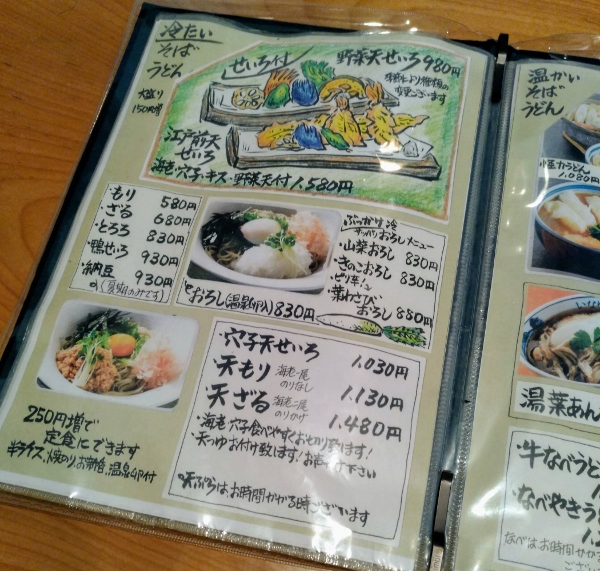 冷たい
そば
うどん
大盛り
150円増
せいろ付
野菜天せいろ 980円
季節により種類の
変更ございます
江戸前天
せいろ
海老・穴子・キス・野菜天付 1.580円
・もり 580円
・ざる 680円
・とろろ 830円
・鴨せいろ 930円
・納豆 930円
(夏期のみです)
おろし(温泉卵入) 830円
ぶっかけ生冷
サッパリおろしメニュー
・山菜おろし 830円
・きのこおろし 830円
・ピリ辛
葉わさび
おろし 880円
・穴子天せいろ 1.030円
・天もり 海老一尾 のりなし 1.130円
・天ざる 海老二尾 のりかけ 1.480円
・海老、穴子食べやすくお切り致します!
・天つゆお付け致します!お声がけ下さい
天ぷらは、お時間がかかる時ございます
250円増で
定食にできます
半ライス、焼のり、お新香、温泉卵付
温かい
そば
うどん
力うどん
1.080円
湯葉あん
・牛なべうどん
・なべやきう
なべは、お時間がかか
ござい